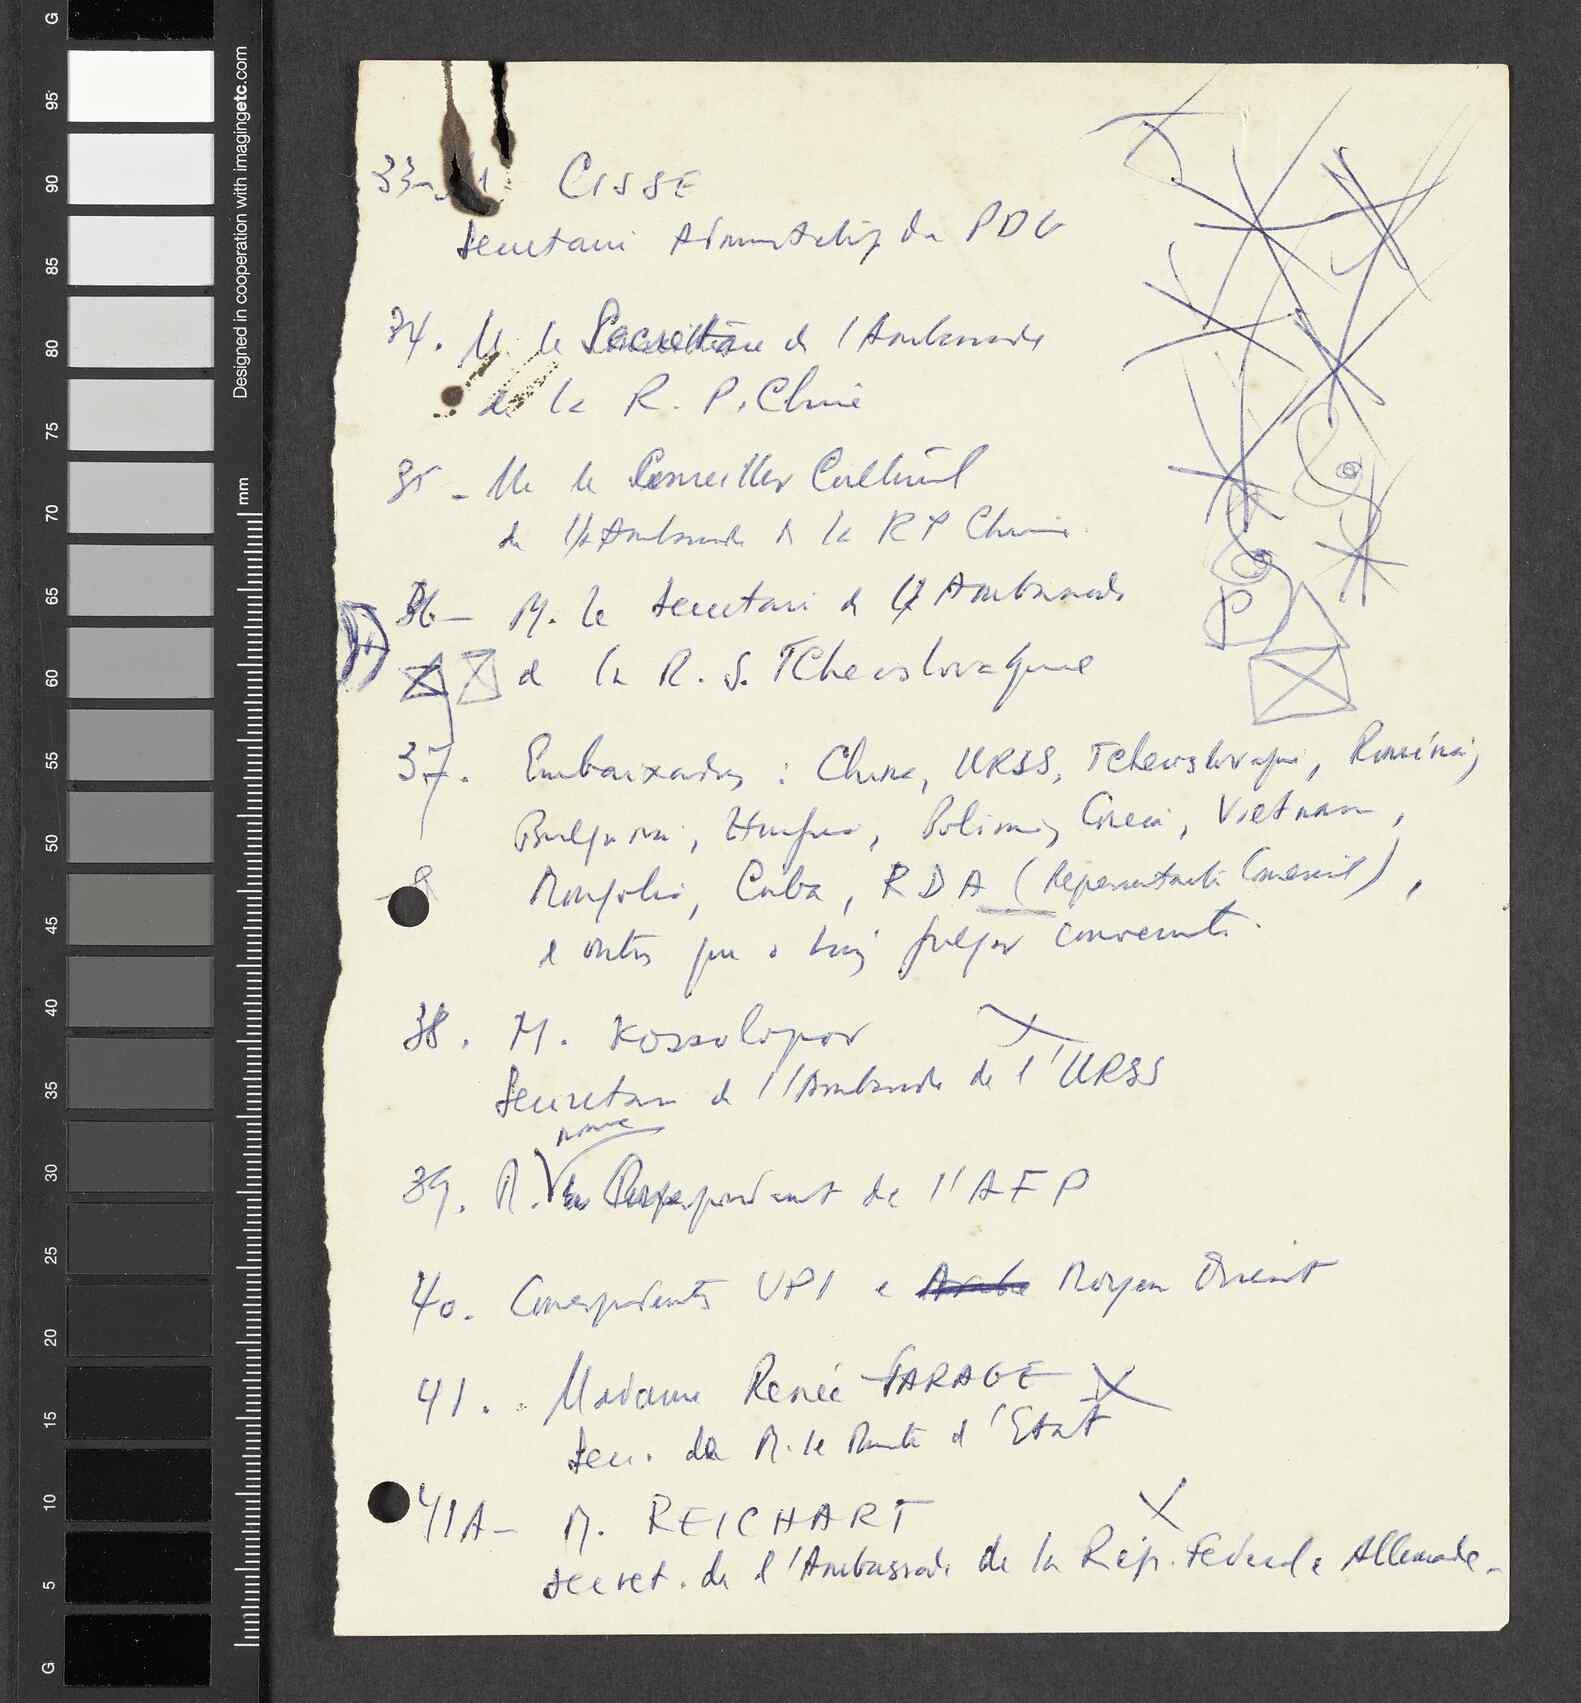 33- M. CISSE
Secretaire Administratif du PDG
34. M. le Secretaire de l'Ambassade
de la R. P. Chine
35 - M. le Conseiller Culturel
de l'Ambassade de la RP Chine
36 - M. le Secretaire de l'Ambassade
de la R. S. TCheoslovaquie
37. Embaixadas : China, URSS, TCheoslovaquia, Roménia,
Bulgaria, Hungria, Polonia, Coreia, Vietnam,
Mongolia, Cuba, RDA (Representante Comercial),
e outros que o julgar conveniente.
38. M. Kossolopov
Secretaire de l'Ambassade de l'URSS
39. M. le Correspondant de l'AFP
40. Correspondentes UPI e Moyen Orient
41. Madame Renée FARAGE
Secr. de M. le Ministre d'Etat
41A - M. REICHART
Secret. de l'Ambassade de la Rép. Féderale Allemande -
G
95
90
85
80
75
70
65
60
55
50
45
40
35
30
25
20
15
10
5
G
mm
Designed in cooperation with imagingetc.com